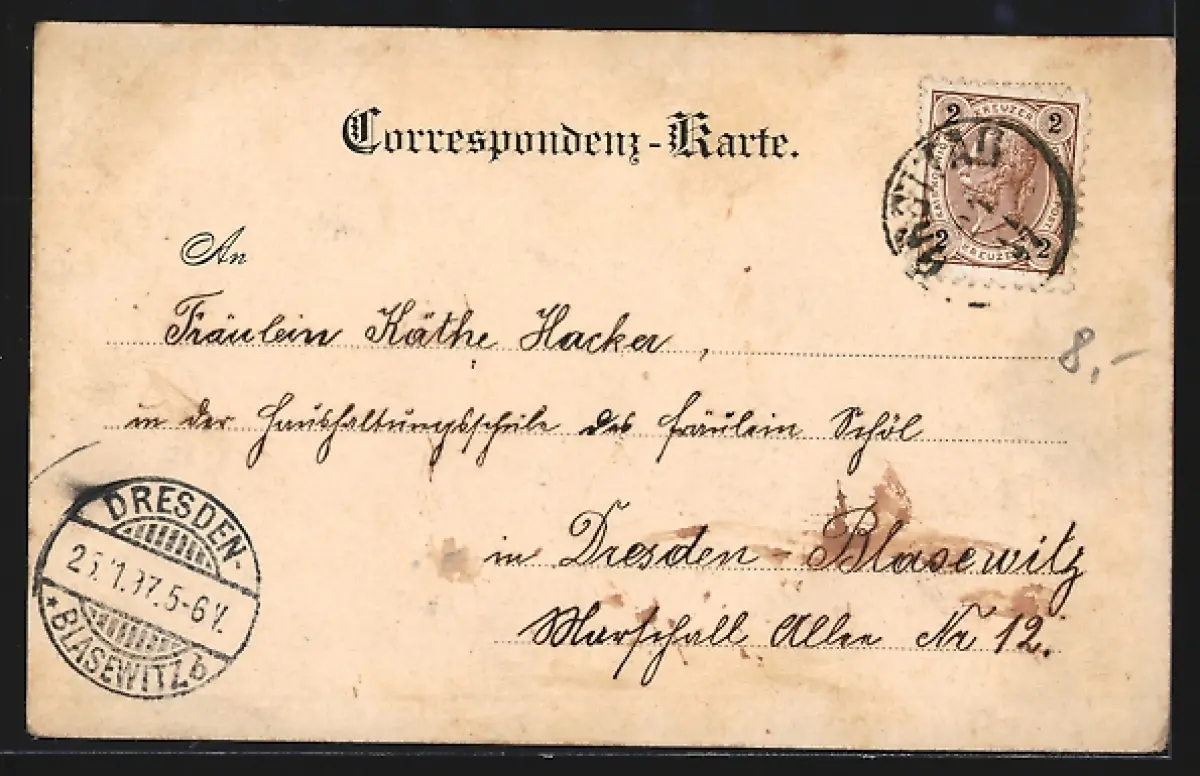 Correspondenz-Karte.
2 KREUZER 2
2 KREUZER 2
An
Fräulein Käthe Hacker,
8,-
in der Haushaltungsschule des Fräulein Schöl
DRESDEN-
1.97.5-6V.
*BLASEWITZ b
in Dresden-Blasewitz
Marschall Allee Nr 12.